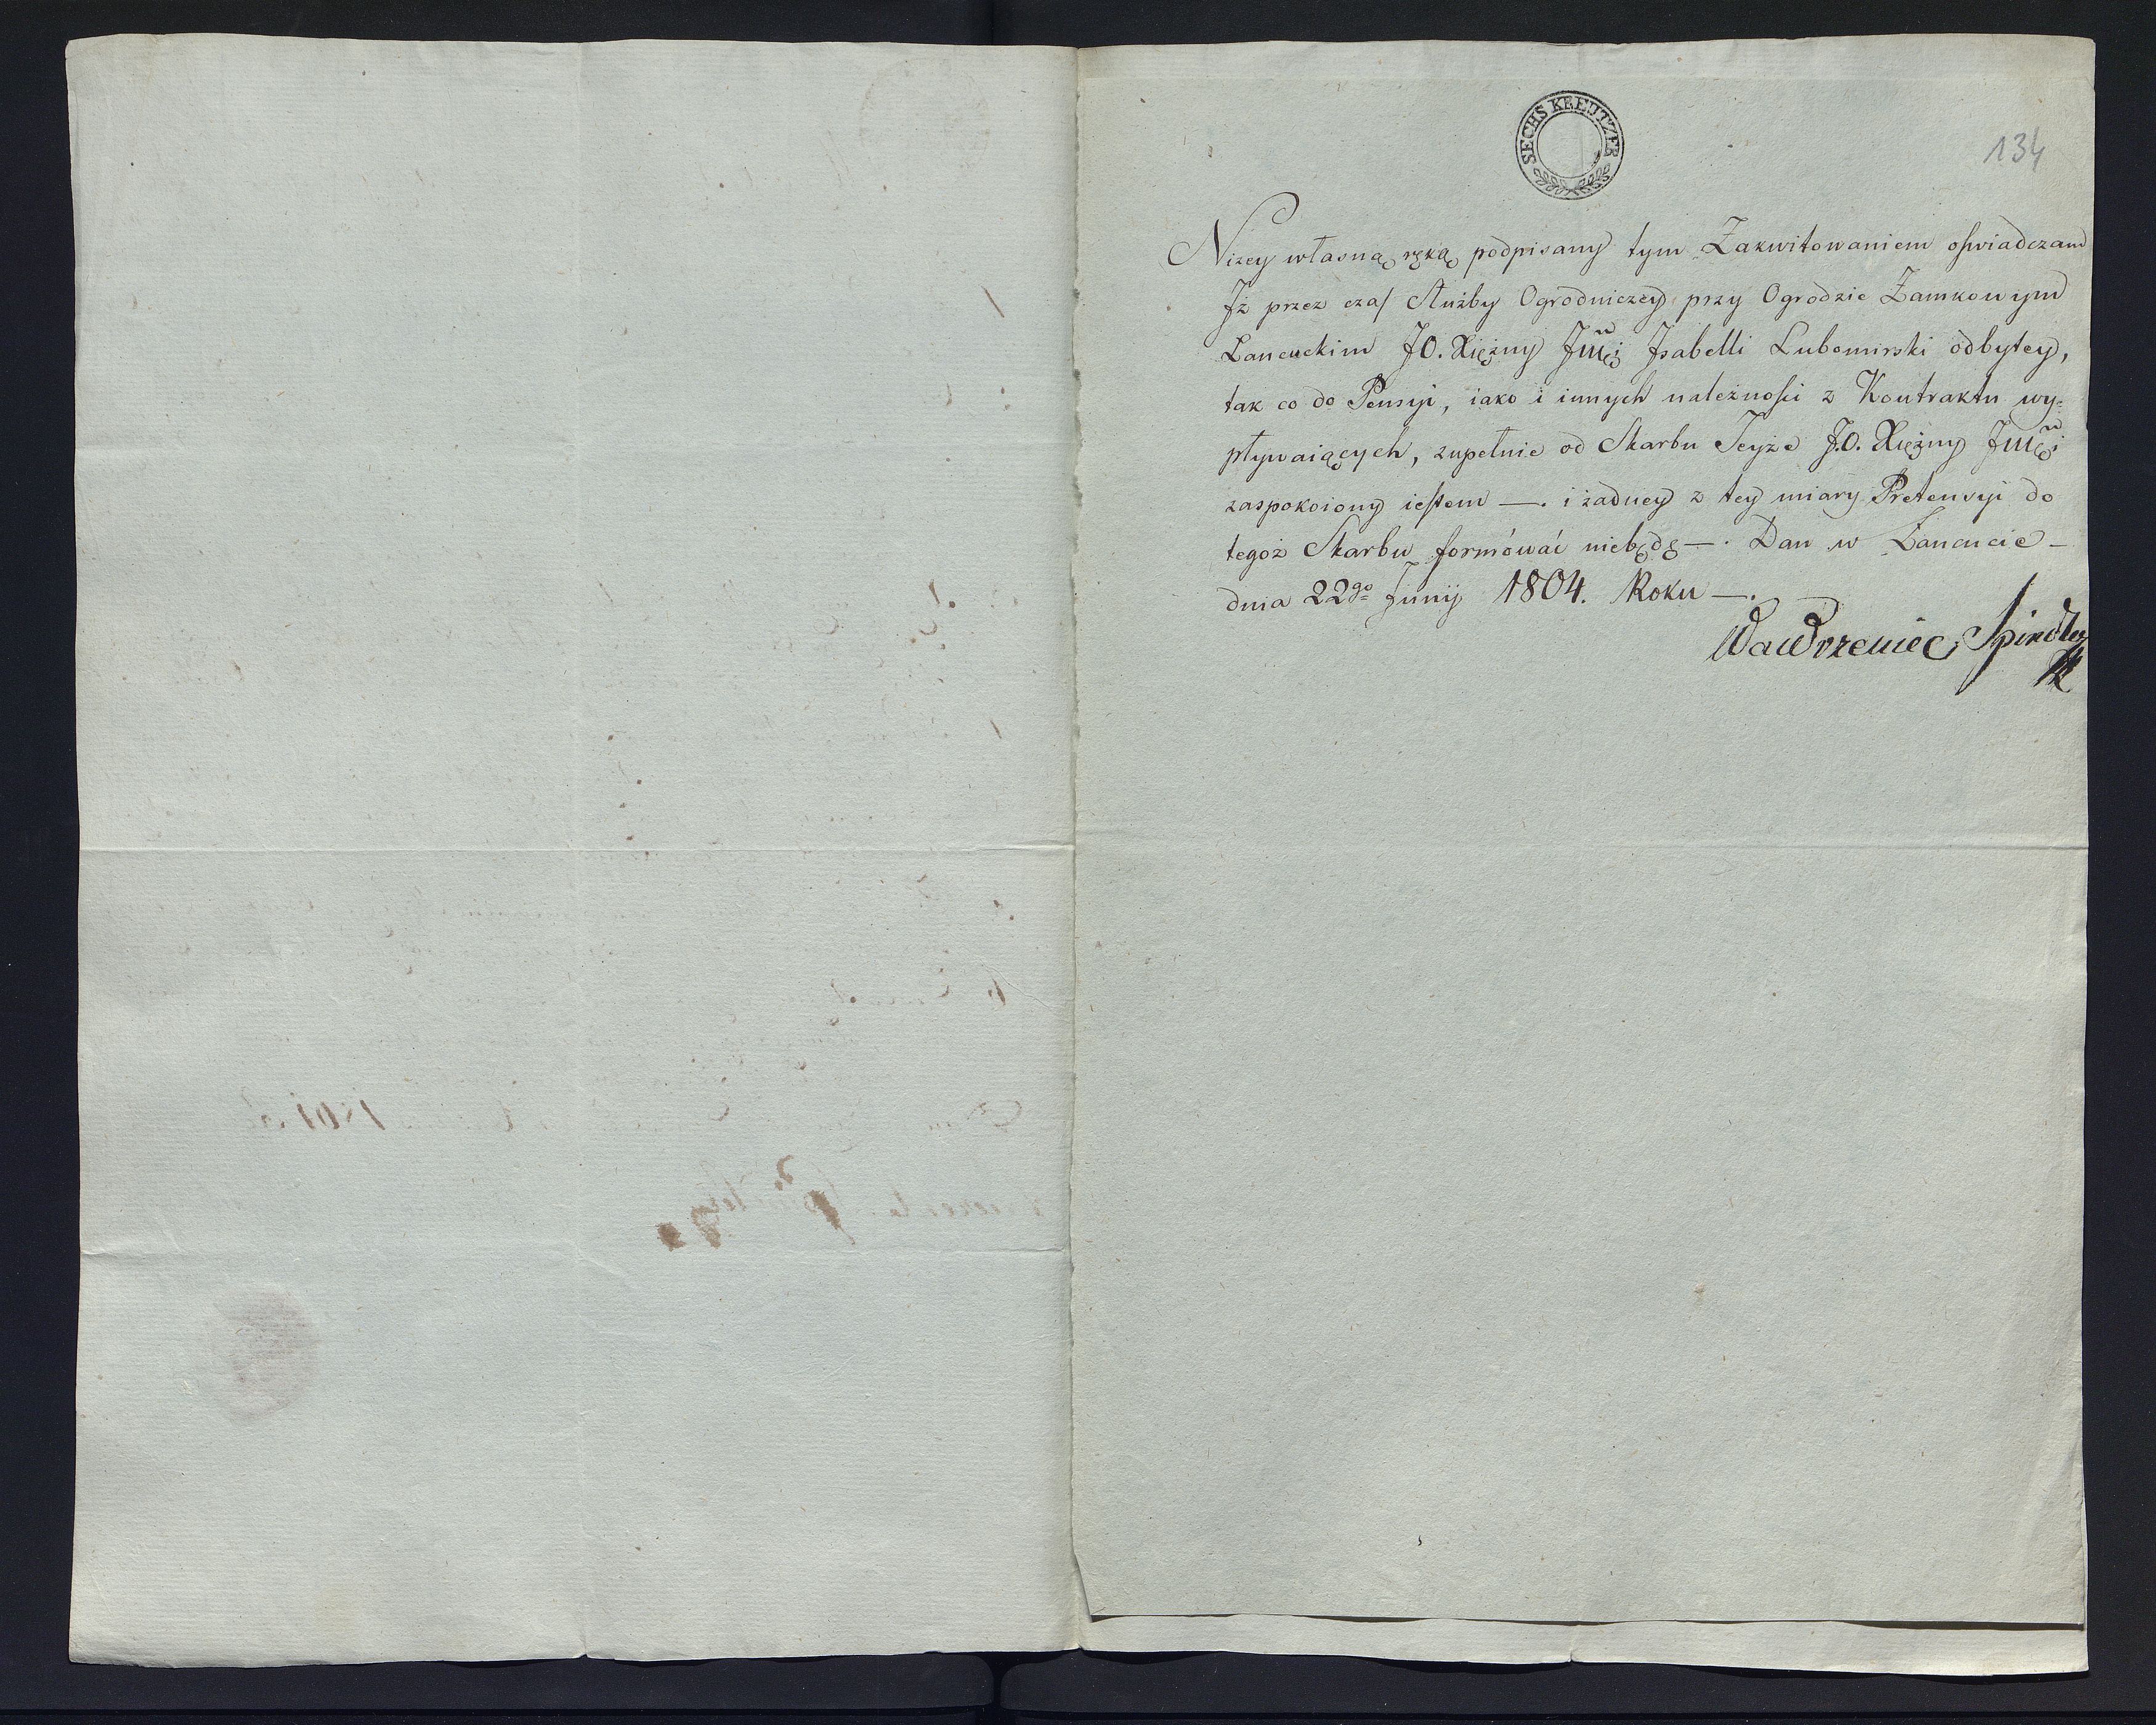 SECHS KREUTZER
134
Nizey własną ręką podpisany tym Zakwitowaniem oſwiadczam
Jż przez czaſ Służby Ogrodniczey przy Ogrodzie Zamkowym
Lancuckim JO. Xiężny Jmći Jsabelli Lubomirski odbytey,
tak co do Pensyi, iako i innych należnoſci z Kontraktu wy=
pływaiących, zupełnie od Skarbu Teyże J.O. Xiężny Jmći
zaspokoiony ieſtem —. i żadney z tey miary Pretensyi do
tegoż Skarbu formówać niebędę —. Dan w Lancucie —
dnia 22go Junij 1804. Roku —.
Wawrzeniec Spindler